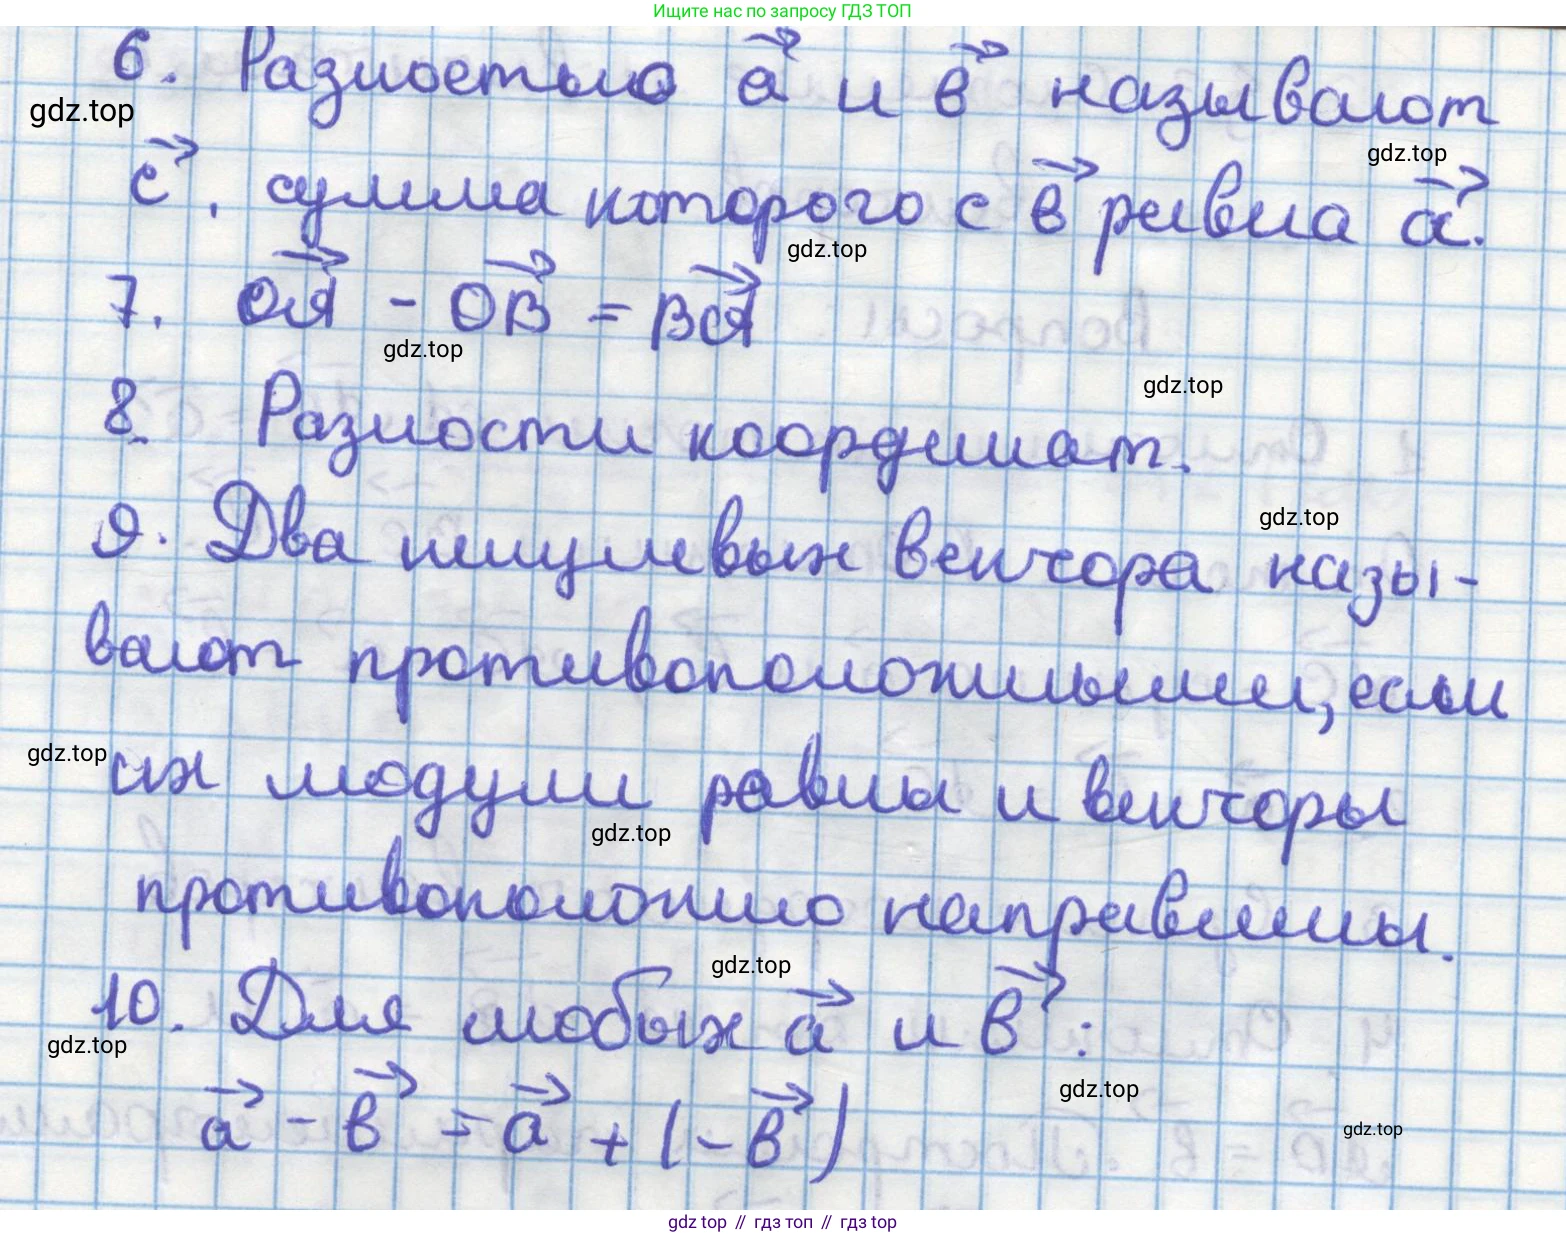 Ищите нас по запросу ГДЗ ТОП
6. Разностью a⃗ и в⃗ называют
gdz.top
gdz.top
c⃗, сумма которого с в⃗ равна a⃗.
gdz.top
7. OA⃗ - OB⃗ = BA⃗
gdz.top
gdz.top
8. Разности координат.
gdz.top
9. Два ненулевых вектора назы-
вают противоположными, если
gdz.top
их модули равны и векторы
gdz.top
противоположно направлены.
gdz.top
10. Для любых a⃗ и в⃗:
gdz.top
gdz.top
a⃗ - в⃗ = a⃗ + (-в⃗)
gdz.top
gdz top // гдз топ // гдз top